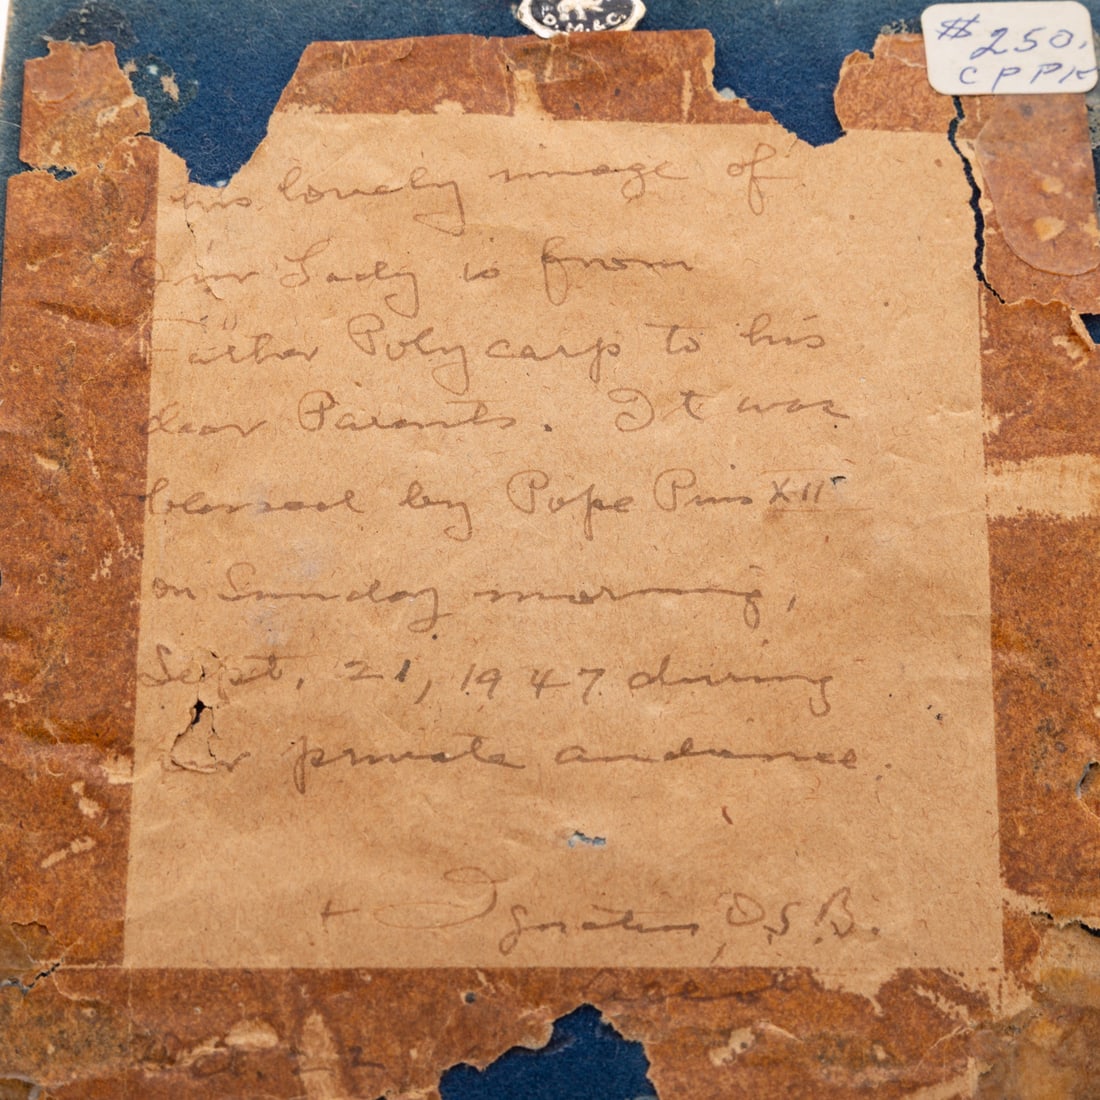 D.M.&C.
$250.
CPPK
his lovely image of
Our Lady is from
Father Polycarp to his
dear Parents. It was
blessed by Pope Pius XII
on Sunday morning,
Sept. 21, 1947 during
our private audience.
+ Ignatius, O.S.B.